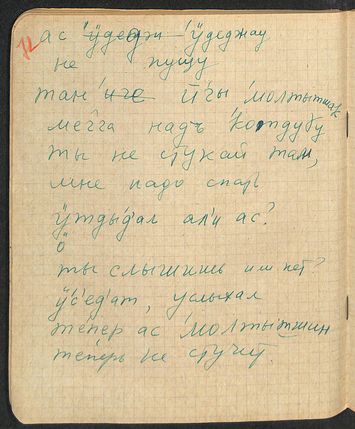 12 ас ӱдеджи ӱдеджау
не пущу
тан инче й'гы молтытшак
мегга надъ котдубу
ты не стукай там,
мне надо спать
ӱтдыдал али ас?
ты слышишь или нет?
ӱседат, услыхал
тепер ас молтытшин
теперь не стучит.